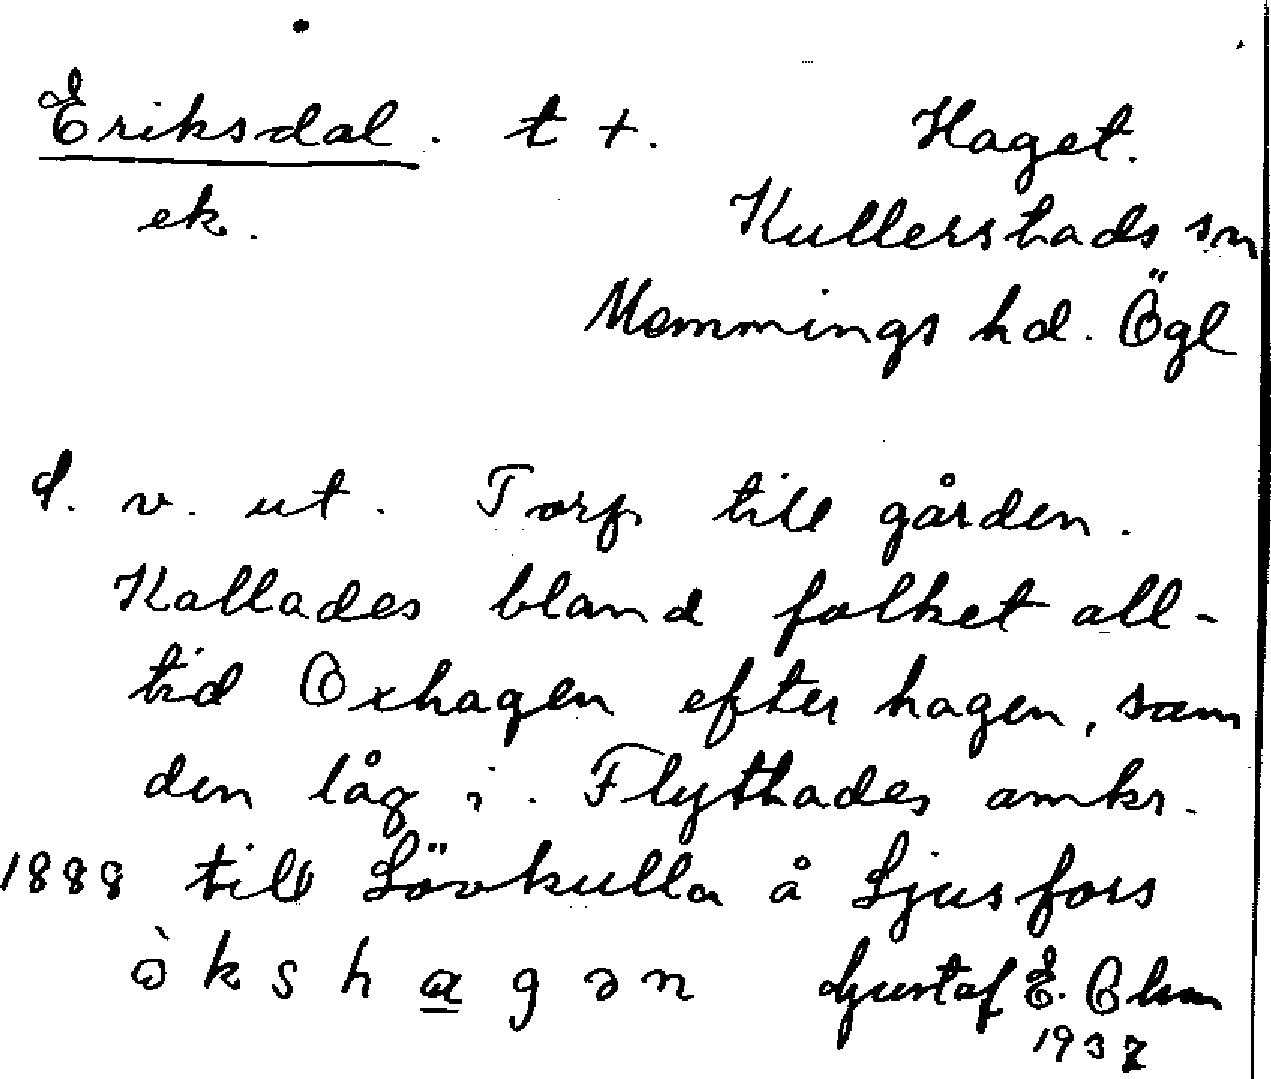 Eriksdal. t +. Haget.
ek. Kullerstads sn
Memmings hd. Ögl
d. v. ut. Torp till gården.
Kallades bland folket all-
tid Oxhagen efter hagen, som
den låg i. Flyttades omkr.
1888 till Lövkulla å Ljusfors
ò k s h a g ə n Gustaf E. Olson
1937